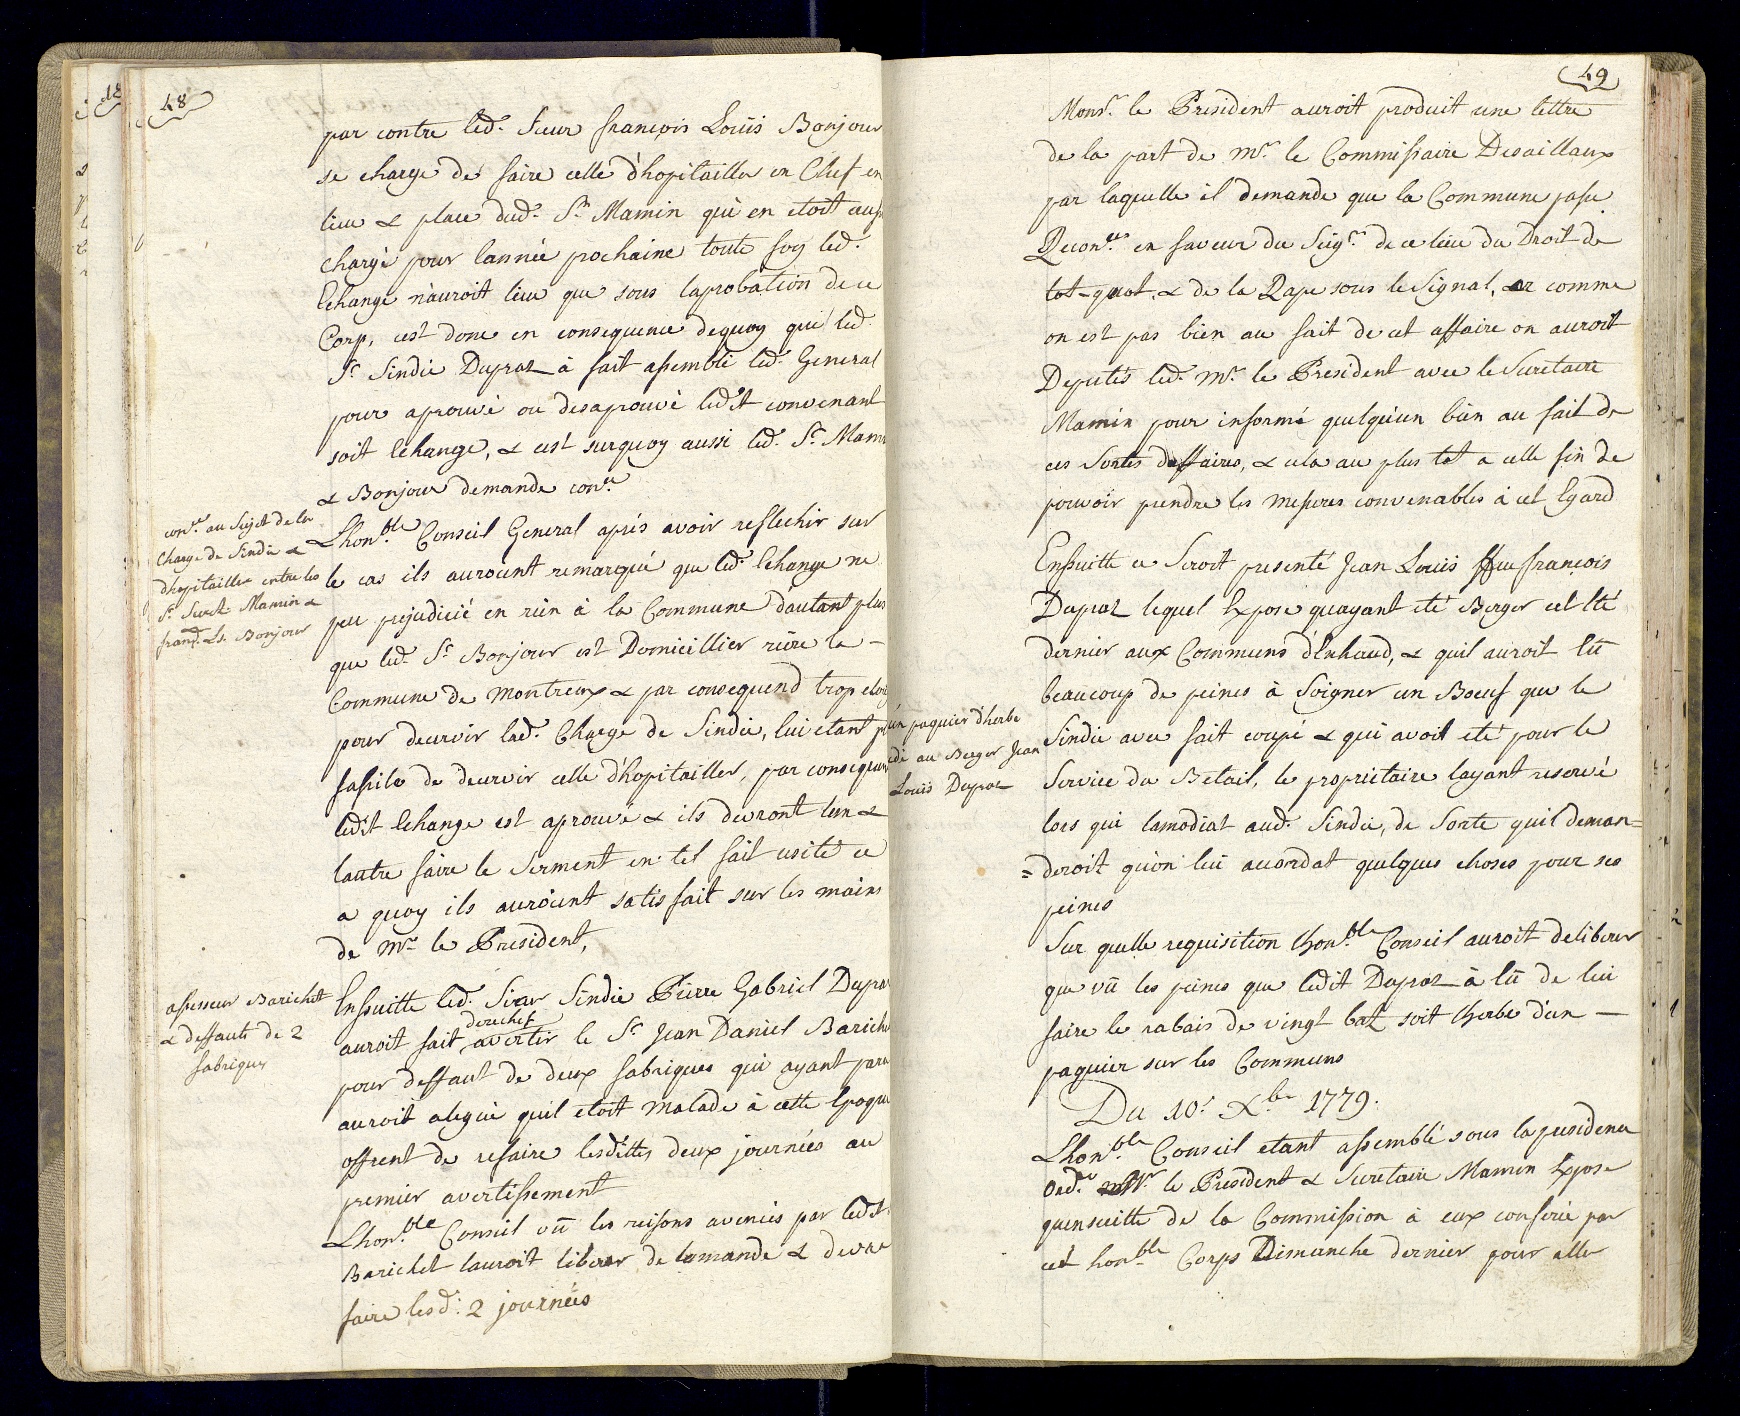 48
par contre led. Sieur françois Louïs Bonjour
se charge de faire celle d'hopitaillér en Chef en
lieu & place dud. Sr. Mamin qui en etoit aussi
chargé pour lannée prochaine toute foy led.
Echange n'auroit lieu que sous laprobation de ce
Corp, cest donc en consequence dequoy qui led.
Sr. Sindic Dupraz à fait assemblé led. General
pour aprouvé ou desaprouvé ledit convenant
soit Echange, & cest surquoy aussi led. Sr. Mamin
& Bonjour demande con.ce
con.ce au Sujet de la
Charge de Sindic &
d'hopitaillér entre les
Sr. Secrét. Mamin &
franç. Ls. Bonjour
Lhon.ble Conseil General aprés avoir reflechir sur
le cas ils auroient remarqué que led. Echange ne
peu prejudicié en rién à la Commune d'autant plus
que led. Sr. Bonjour est Domicillier riére la
Commune de Montreux & par consequend trop eloig
pour decervir lad. Charge de Sindic, lui etant pl
fassile de decervir celle d'hopitaillér, par consequent
ledit Echange est aprouvé & ils devront lun &
lautre faire le Serment en tel fait usité ce
a quoy ils auroient satisfait sur les mains
de Mr. le President,
assesseur Barichet
& deffaute de 2
fabriques
Ensuitte led. Sieur Sindic Pierre Gabriel Dupraz
auroit fait derechef avertir le Sr. Jean Daniel Bariche
pour deffaut de deux fabriques qui ayant paru
auroit alegué quil etoit malade à cette Epoque
offrent de refaire lesdittes deux journées au
premier avertissement
Lhon.ble Conseil vû les raisons avenies par ledit
Barichet lauroit liberer de lamande & devra
faire lesd. 2 journées
49
Monsr. le President auroit produit une lettre
de la part de Mr. le Commissaire Desaillaux
par laquelle il demande que la Commune passe
Recon.ce en faveur du Seigr. de ce lieu du Droit de
tot-quot, & de la Rape sous le Signal, or comme
on est pas bien au fait de cet affaire on auroit
Deputés led. Mr. le President avec le Secretaire
Mamin pour informé quelqu'un bién au fait de
ces Sortes daffaires, & cela au plus tot a celle fin de
pouvoir prendre les mesures convenables à cet Egard
Ensuitte ce Seroit presenté Jean Louis ffeu françois
Dupraz lequel Expose quayant eté Berger cet Eté
dernier aux Communs d'Enhaud, & quil auroit Eû
beaucoup de peines à Soigner un Boeuf que le
Sindic avec fait coupé & qui avoit eté pour le
Service du Betail, le proprietaire layant reservé
lors qui lamodiat aud. Sindic, de Sorte quil deman=
=deroit qu'on lui accordat quelques choses pour ses
peines
un paquier d'herbe
cdé au Berger Jean
Louis Dupraz
Sur quelle requisition lhon.ble Conseil auroit deliberer
que vû les peines que ledit Dupraz à Eû de lui
faire le rabais de vingt batz soit lherbe d'un
paquier sur les Communs
Du 10e. Xbre 1779.
Lhon.ble Conseil etant assemblé sous la presidence
Ord.re Mr. le President & Secretaire Mamin Expose
quensuitte de la Commission à eux conferée par
cet hon.ble Corps Dimanche dernier pour aller